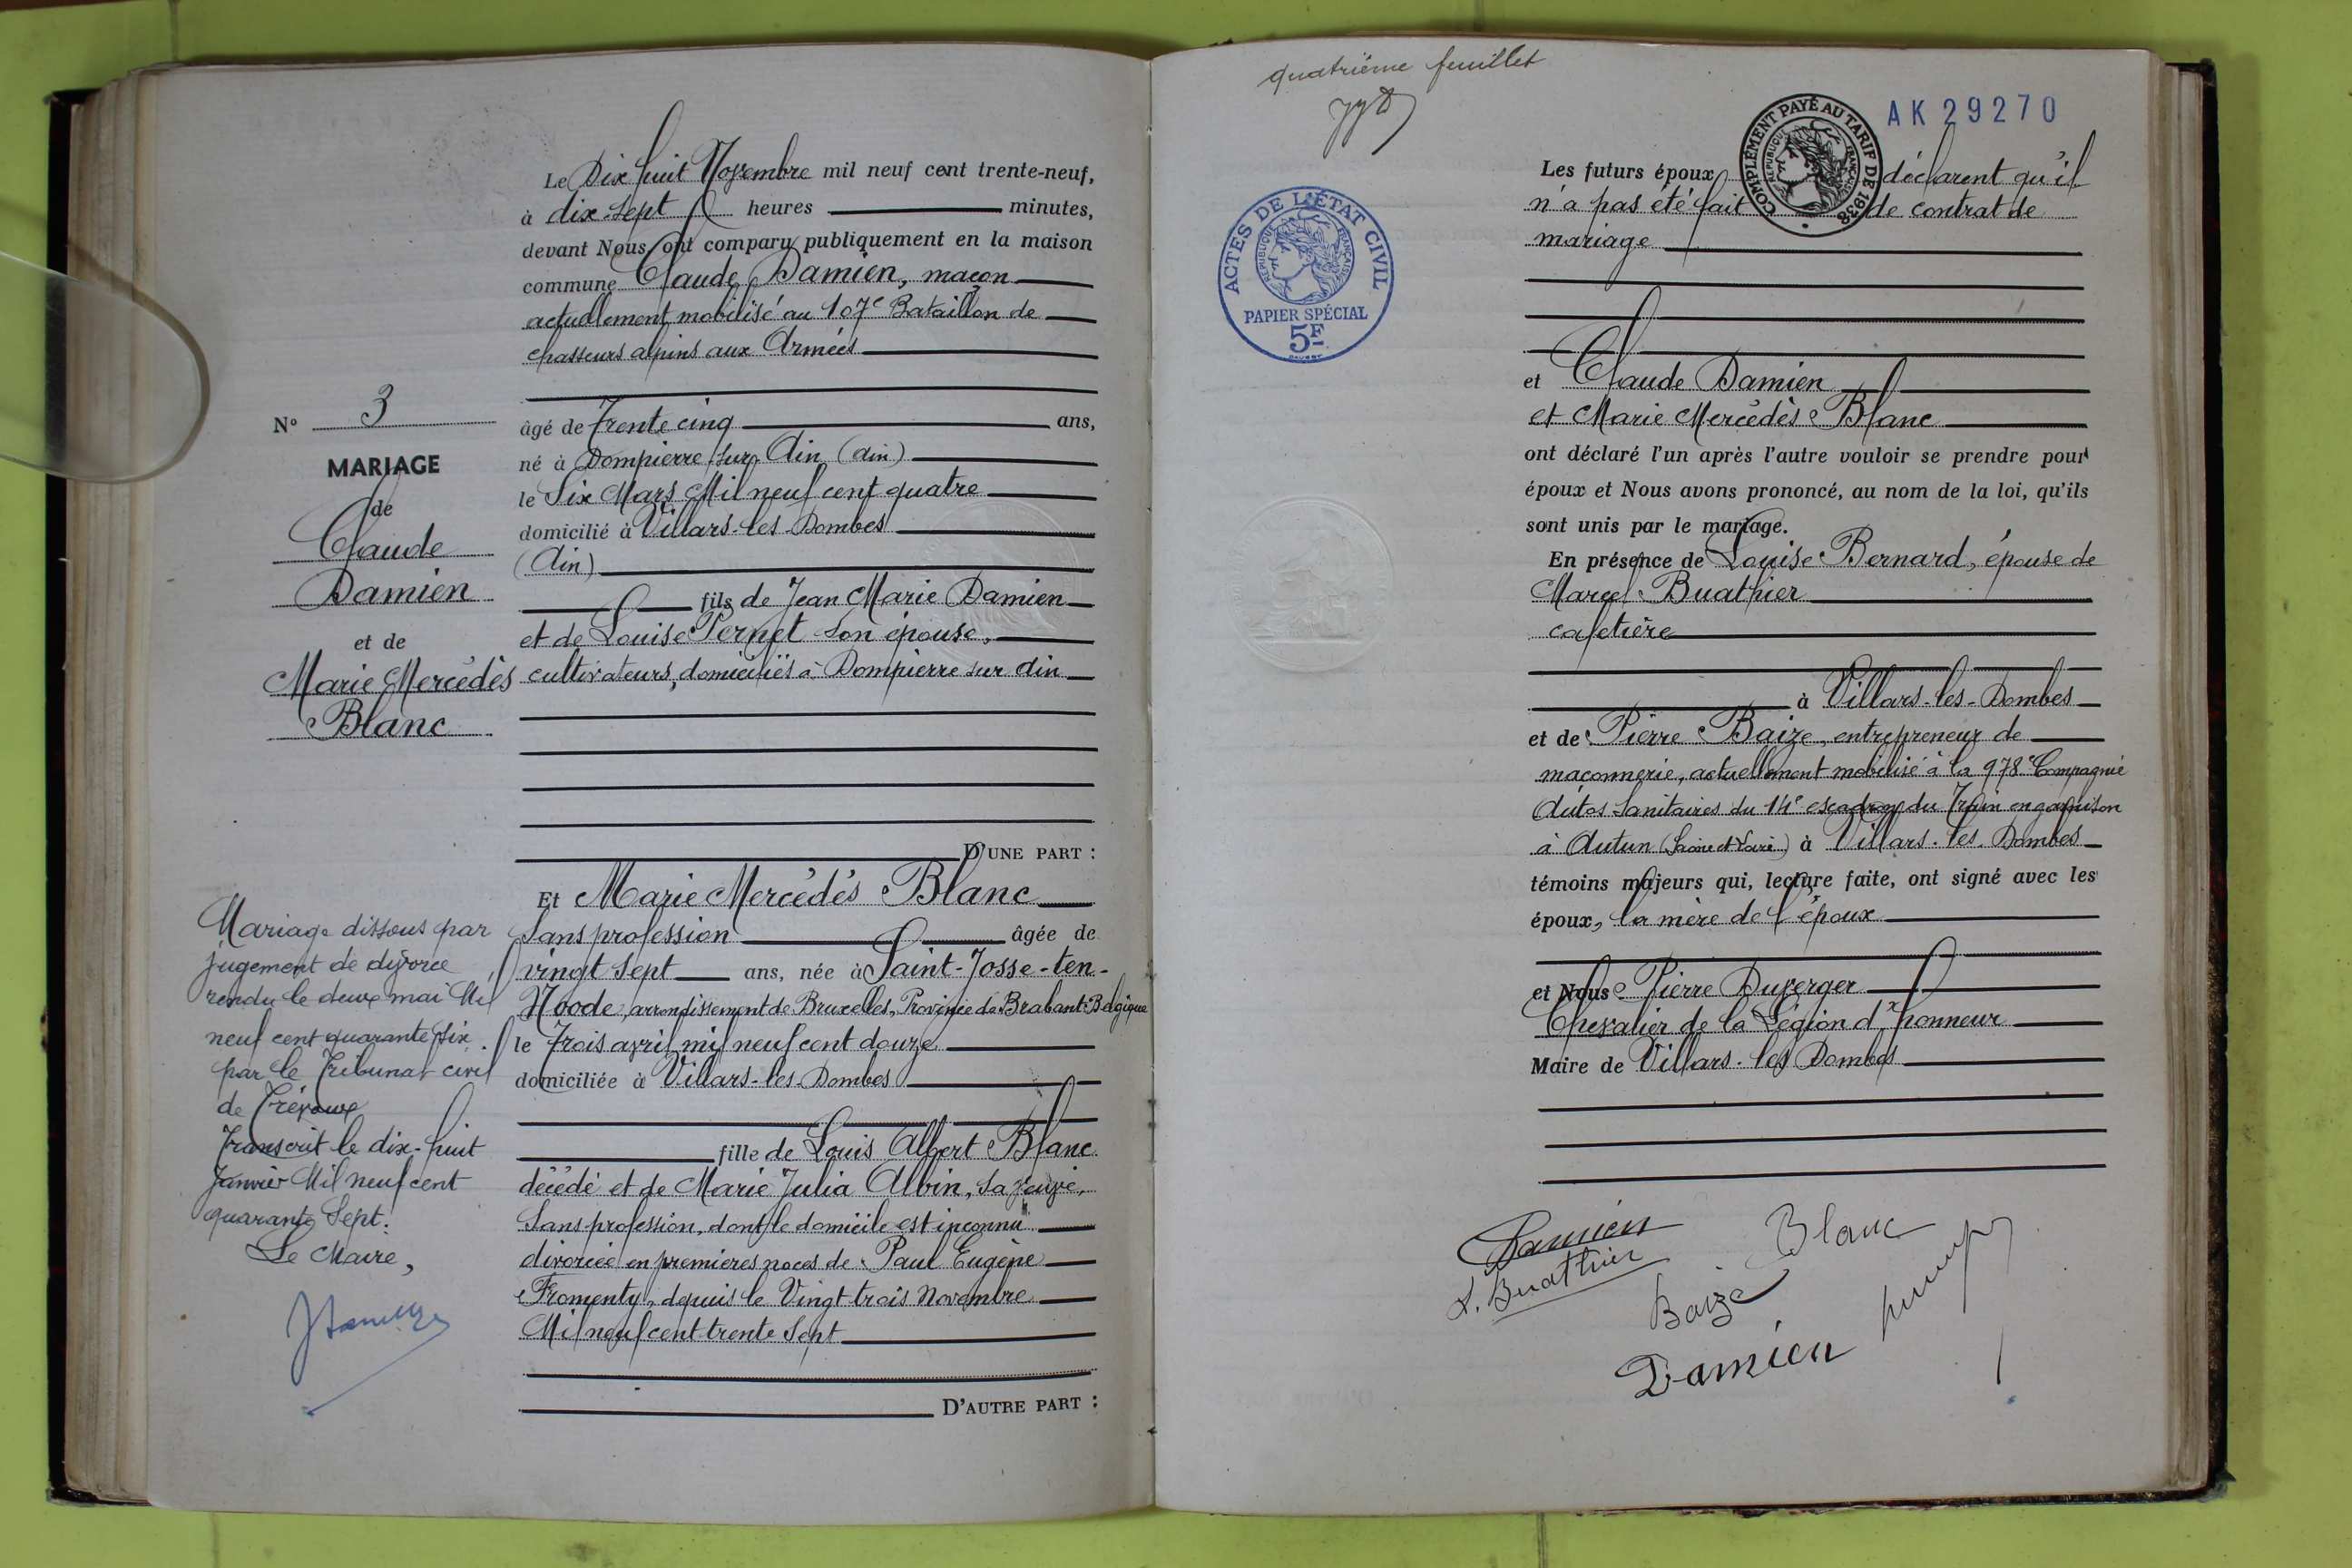 Le Dix huit Novembre mil neuf cent trente-neuf,
à dix-sept heures minutes,
devant Nous ont comparu publiquement en la maison
commune Claude Damien, maçon
actuellement mobilisé au 107e Bataillon de
chasseurs alpins aux Armées
âgé de Trente cinq ans,
né à Dompierre-sur-Ain (Ain)
le Six Mars Mil neuf cent quatre
domicilié à Villars-les-Dombes
(Ain)
fils de Jean Marie Damien
et de Louise Pernet son épouse,
cultivateurs, domiciliés à Dompierre sur Ain
D'UNE PART :
Et Marie Mercédès Blanc
Sans profession âgée de
vingt sept ans, née à Saint-Josse-ten-
Noode, arrondissement de Bruxelles, Province de Brabant-Belgique
le Trois avril mil neuf cent douze
domiciliée à Villars-les-Dombes
fille de Louis Albert Blanc
décédé et de Marie Julia Albin, sa veuve,
Sans profession, dont le domicile est inconnu
divorcée en premières noces de Paul Eugène
Fromenty, depuis le Vingt-trois Novembre
Mil neuf cent trente Sept
D'AUTRE PART :
No 3
MARIAGE
de
Claude
Damien
et de
Marie Mercédès
Blanc
Mariage dissous par
jugement de divorce
rendu le deux mai Mil
neuf cent quarante six
par le Tribunal civil
de Trévoux
Transcrit le dix-huit
Janvier Mil neuf cent
quarante Sept.
Le Maire,
quatrième feuillet
AK 29270
COMPLÉMENT PAYÉ AU TARIF DE 1938
RÉPUBLIQUE FRANÇAISE
ACTES DE L'ÉTAT CIVIL
RÉPUBLIQUE FRANÇAISE
PAPIER SPÉCIAL
5F
Les futurs époux déclarent qu'il
n'a pas été fait de contrat de
mariage
et Claude Damien
et Marie Mercédès Blanc
ont déclaré l'un après l'autre vouloir se prendre pour
époux et Nous avons prononcé, au nom de la loi, qu'ils
sont unis par le mariage.
En présence de Louise Bernard, épouse de
Marcel Buathier
cafetière
à Villars-les-Dombes
et de Pierre Baize, entrepreneur de
maçonnerie, actuellement mobilisé à la 978e Compagnie
Autos Sanitaires du 14e escadron du Train en garnison
à Autun (Saône et Loire) à Villars-les-Dombes
témoins majeurs qui, lecture faite, ont signé avec les
époux, la mère de l'époux
et Nous Pierre Duverger
Chevalier de la Légion d'honneur
Maire de Villars-les Dombes
Damien
Blanc
L. Buathier
Baize
Damien